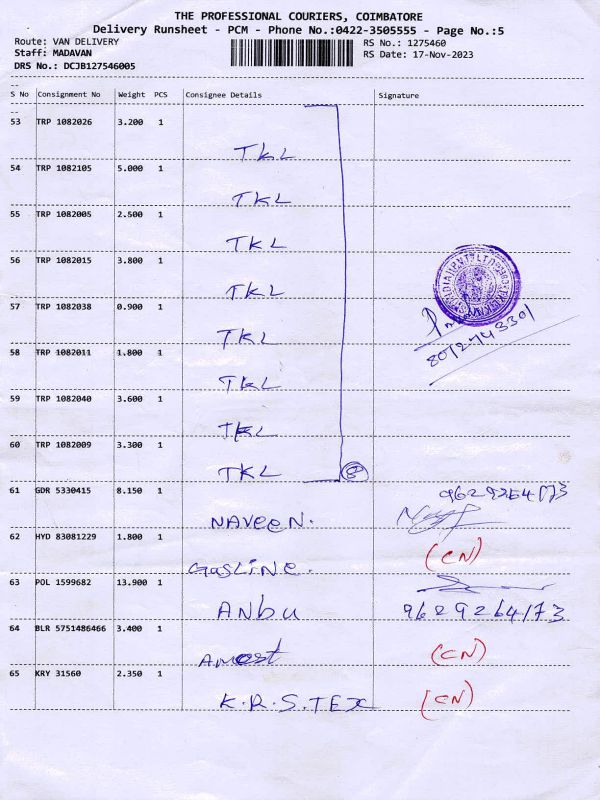 THE PROFESSIONAL COURIERS, COIMBATORE
Delivery Runsheet - PCM - Phone No.:0422-3505555 - Page No.:5
Route: VAN DELIVERY RS No.: 1275460
Staff: MADAVAN RS Date: 17-Nov-2023
DRS No.: DCJB127546005
S No Consignment No Weight PCS Consignee Details Signature
53 TRP 1082026 3.200 1
TKL
54 TRP 1082105 5.000 1
TKL
55 TRP 1082005 2.500 1
TKL
56 TRP 1082015 3.800 1
TKL
57 TRP 1082038 0.900 1
TKL
58 TRP 1082011 1.800 1
TKL
59 TRP 1082040 3.600 1
TKL
60 TRP 1082009 3.300 1
TKL 8
61 GDR 5330415 8.150 1 9629264173
NAVEEN.
62 HYD 83081229 1.800 1 (CN)
GASLINE.
63 POL 1599682 13.900 1
ANBU 9629264173
64 BLR 5751486466 3.400 1 (CN)
65 KRY 31560 2.350 1 (CN)
K.R.S.TEX
8012743301